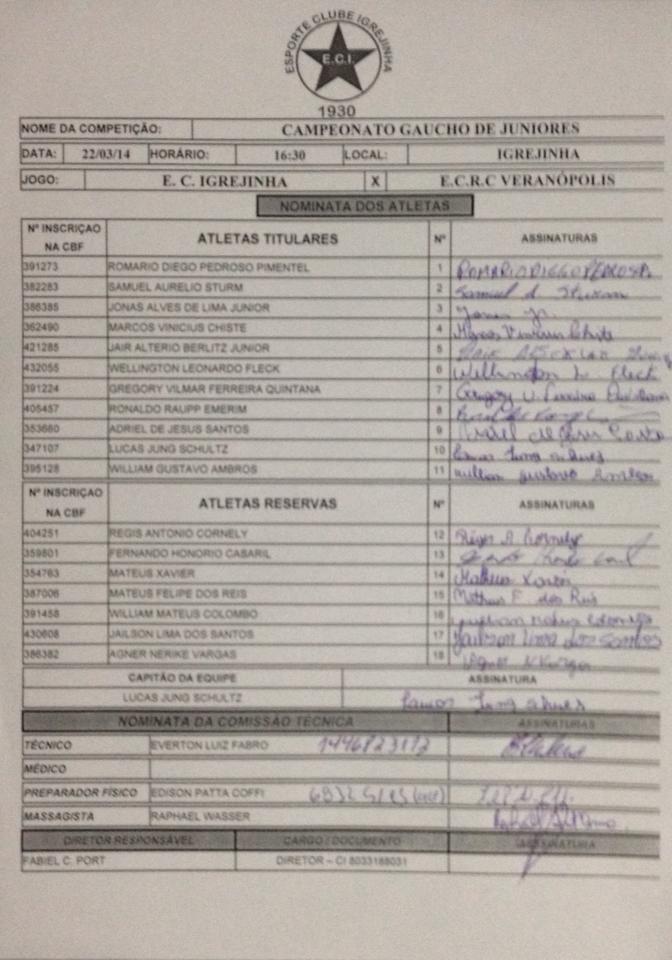 ESPORTE CLUBE IGREJINHA
E.C.I.
1930
NOME DA COMPETIÇÃO: CAMPEONATO GAUCHO DE JUNIORES
DATA: 22/03/14 HORÁRIO: 16:30 LOCAL: IGREJINHA
JOGO: E. C. IGREJINHA X E.C.R.C VERANÓPOLIS
NOMINATA DOS ATLETAS
Nº INSCRIÇAO NA CBF ATLETAS TITULARES Nº ASSINATURAS
391273 ROMARIO DIEGO PEDROSO PIMENTEL 1 ROMARIO DIEGO PEDROSO
382283 SAMUEL AURELIO STURM 2 Samuel A. Sturm
386385 JONAS ALVES DE LIMA JUNIOR 3 Jonas Jr.
362490 MARCOS VINICIUS CHISTE 4 Marcos Vinicius Chiste
421285 JAIR ALTERIO BERLITZ JUNIOR 5
432055 WELLINGTON LEONARDO FLECK 6 Wellington L. Fleck
391224 GREGORY VILMAR FERREIRA QUINTANA 7 Gregory V. Ferreira Quintana
405457 RONALDO RAUPP EMERIM 8
353680 ADRIEL DE JESUS SANTOS 9 Adriel de Jesus Santos
347107 LUCAS JUNG SCHULTZ 10 Lucas Jung
395128 WILLIAM GUSTAVO AMBROS 11 William Gustavo Ambros
Nº INSCRIÇAO NA CBF ATLETAS RESERVAS Nº ASSINATURAS
404251 REGIS ANTONIO CORNELY 12 Régis A. Cornely
359801 FERNANDO HONORIO CASARIL 13
354763 MATEUS XAVIER 14 Mateus Xavier
387006 MATEUS FELIPE DOS REIS 15 Matheus F. dos Reis
391458 WILLIAM MATEUS COLOMBO 16 William Mateus Colombo
430608 JAILSON LIMA DOS SANTOS 17 Jailson Lima dos Santos
386382 AGNER NERIKE VARGAS 18 Agner N Vargas
CAPITÃO DA EQUIPE ASSINATURA
LUCAS JUNG SCHULTZ Lucas Jung
NOMINATA DA COMISSÃO TÉCNICA ASSINATURAS
TÉCNICO EVERTON LUIZ FABRO
MÉDICO
PREPARADOR FÍSICO EDISON PATTA COFFI
MASSAGISTA RAPHAEL WASSER
DIRETOR RESPONSÁVEL CARGO / DOCUMENTO ASSINATURA
FABIEL C. PORT DIRETOR – CI 8033188031